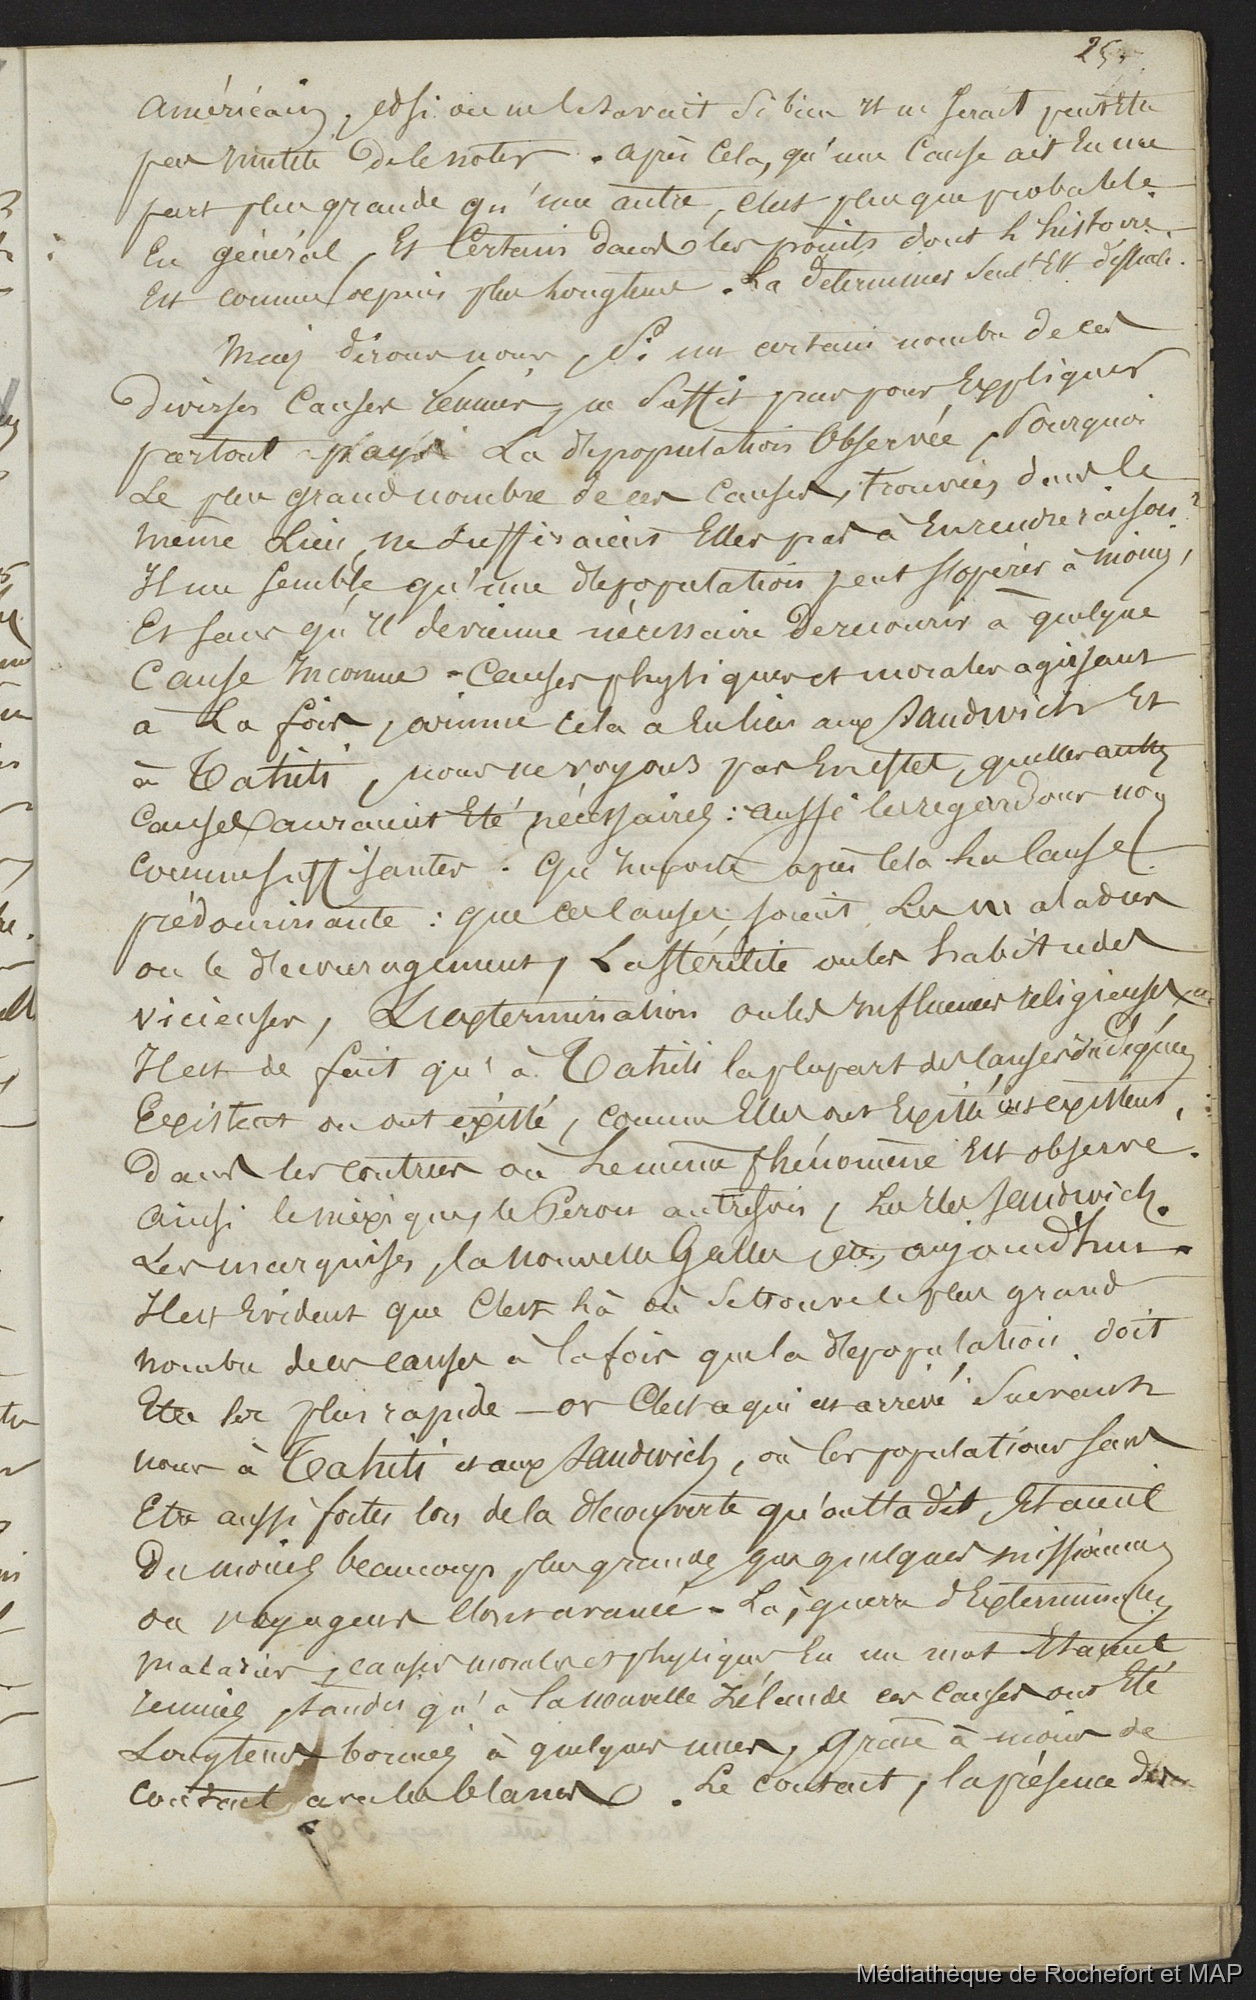 25
américain, et si on ne le savait si bien il ne serait peut être
pas inutile de le noter. après cela, qu'une cause ait eu une
part plus grande qu'une autre, c'est plus que probable
En général, et certain dans les points dont l'histoire
est connue depuis plus longtems. La déterminer seult est difficile.
Mais dirons nous, si un certain nombre de ces
diverses causes réunies, ne suffit pas pour expliquer
partout la dépopulation observée, Pourquoi
Le plus grand nombre de ces causes, trouvées dans le
même Lieu, ne suffiraient Elles pas à En rendre raison?
Il me semble qu'une dépopulation peut s'opérer à moins,
Et sans qu'il devienne nécessaire de recourir à quelque
Cause Inconnue - Causes physiques et morales agissant
à La fois, comme cela a eu lieu aux Sandwich Et
à Tahiti, nous ne voyons pas En effet, quelles autres
causes auraient Eté nécessaires : aussi les regardons nous
comme suffisantes. Qu'importe après cela la cause
prédominante : que ces causes soient Les maladies
ou le découragement, La stérilité ou les habitudes
vicieuses, L'extermination ou les Influences religieuses
Il est de fait qu'à Tahiti la plupart des causes
Existent ou ont existé, comme Elles ont Existé ou existent,
Dans les contrées où Le même phénomène Est observé.
Ainsi le méxique, le Pérou autrefois, Les Iles Sandwich.
Les marquises, la nouvelle Galles, etc, aujourd'hui.
Il est Evident que C'est Là où se trouve le plus grand
nombre de ces causes à la fois que la dépopulation doit
Etre la plus rapide - or C'est ce qui est arrivé suivant
nous à Tahiti et aux Sandwich, où les populations sans
Etre aussi fortes lors de la découverte qu'on l'a dit, Etaient
Du moins beaucoup plus grandes que quelques missionnaires
ou voyageurs l'ont avancé - La, guerre d'Extermination
maladies, causes morales et physiques En un mot Etaient
réunies, tandis qu'à la nouvelle Zélande ces causes ont Eté
Longtems bornées à quelques unes, Grâce à moins de
Contact avec les blancs. Le contact, la présence des
Médiathèque de Rochefort et MAP